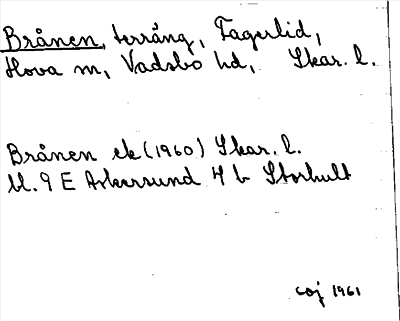 Brånen, terräng, Fagerlid,
Hova sn, Vadsbo hd, Skar. l.
Brånen ek (1960) Skar. l.
bl. 9 E Askersund 4 b Storhult
coj 1961